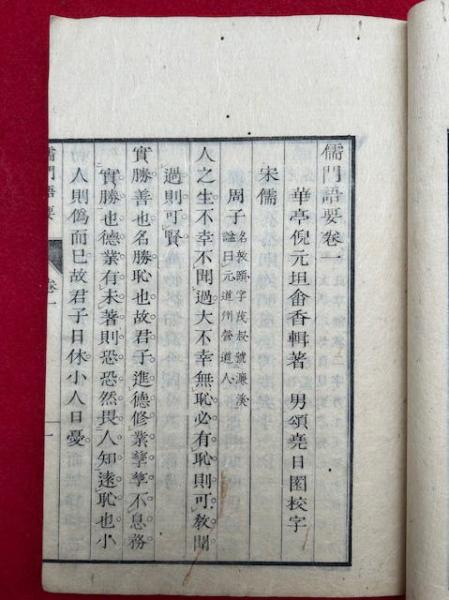 儒門語要卷一
華亭倪元坦畬香輯著　男頌堯日園校字
宋儒
周子名敦頤字茂叔號濂溪
諡曰元道州營道人
人之生不幸不聞過大不幸無恥必有恥則可教聞
過則可賢
實勝善也名勝恥也故君子進德修業孳孳不息務
實勝也德業有未著則恐恐然畏人知遠恥也小
人則僞而已故君子日休小人日憂
儒門語要
卷一
一